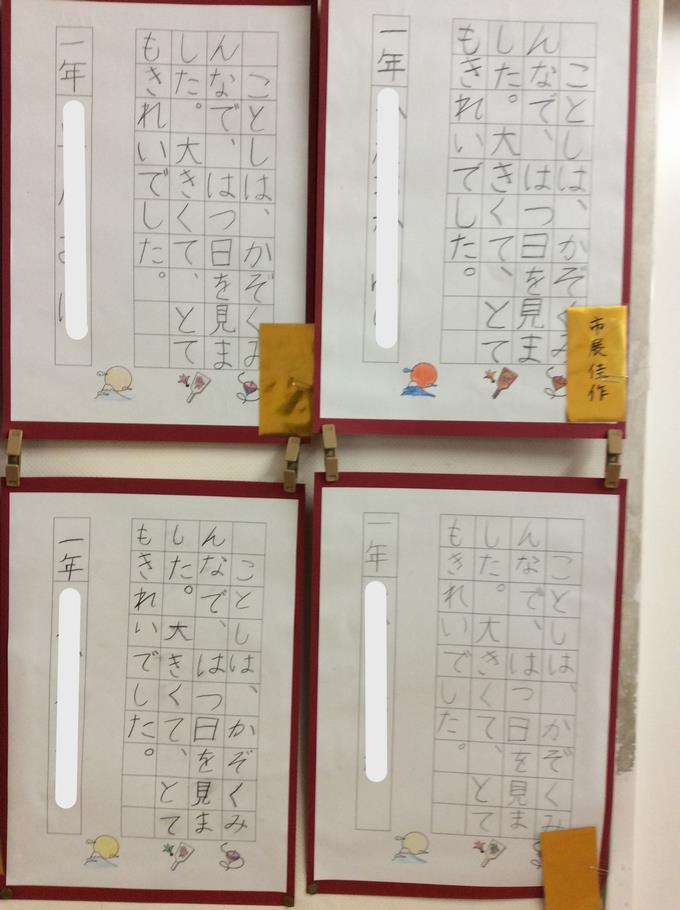 ことしは、かぞくみ
んなで、はつ日を見ま
した。大きくて、とて
もきれいでした。
一年
市展佳作
ことしは、かぞくみ
んなで、はつ日を見ま
した。大きくて、とて
もきれいでした。
一年
ことしは、かぞくみ
んなで、はつ日を見ま
した。大きくて、とて
もきれいでした。
一年
ことしは、かぞくみ
んなで、はつ日を見ま
した。大きくて、とて
もきれいでした。
一年